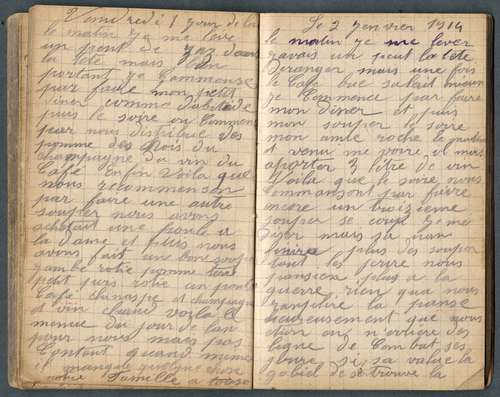 Vendredi 1 jour de l'an
le matin je me leve
un peut de gaz dans
la tête mais bon
portant je Commense
par faire mon petit
diner comme d'abitude
puis le soire on Commense
par nous distribué des
pomme des noix du
champagne du vin du
Café Enfin voila que
nous recommenson
par faire une autre
souper nous avons
achetait une poule a
la dame et puis nous
avons fait un bon souper
jambe rotie pomme
petit puis rotie un poule
Cafe champagne
et vin chaud voila le
menue du jour de l'an
pour nous mais pas
Contant quand même
il manque quelque chose
notre Famille a tous
Le 2 Janvier 1914
le matin je me lever
j'avais un peut la tête
déranger mais une fois
le Café bue salait mieux
je Commence par faire
mon diner et puis
mon souper le soire
mon amie roche
venu me voire il m'ais
aporter 2 litre de vin
Voila que le soire nous
Commonsont par faire
encore un troizieme
souper se coup
diser mais sa
finirez plus des souper
tout les jours nous
pansion plus a la
guerre rien qua nous
remplire la panse
heureusement que nous
étion en arriere des
ligne de Combat ses
jours si sa value la
de se trouve la